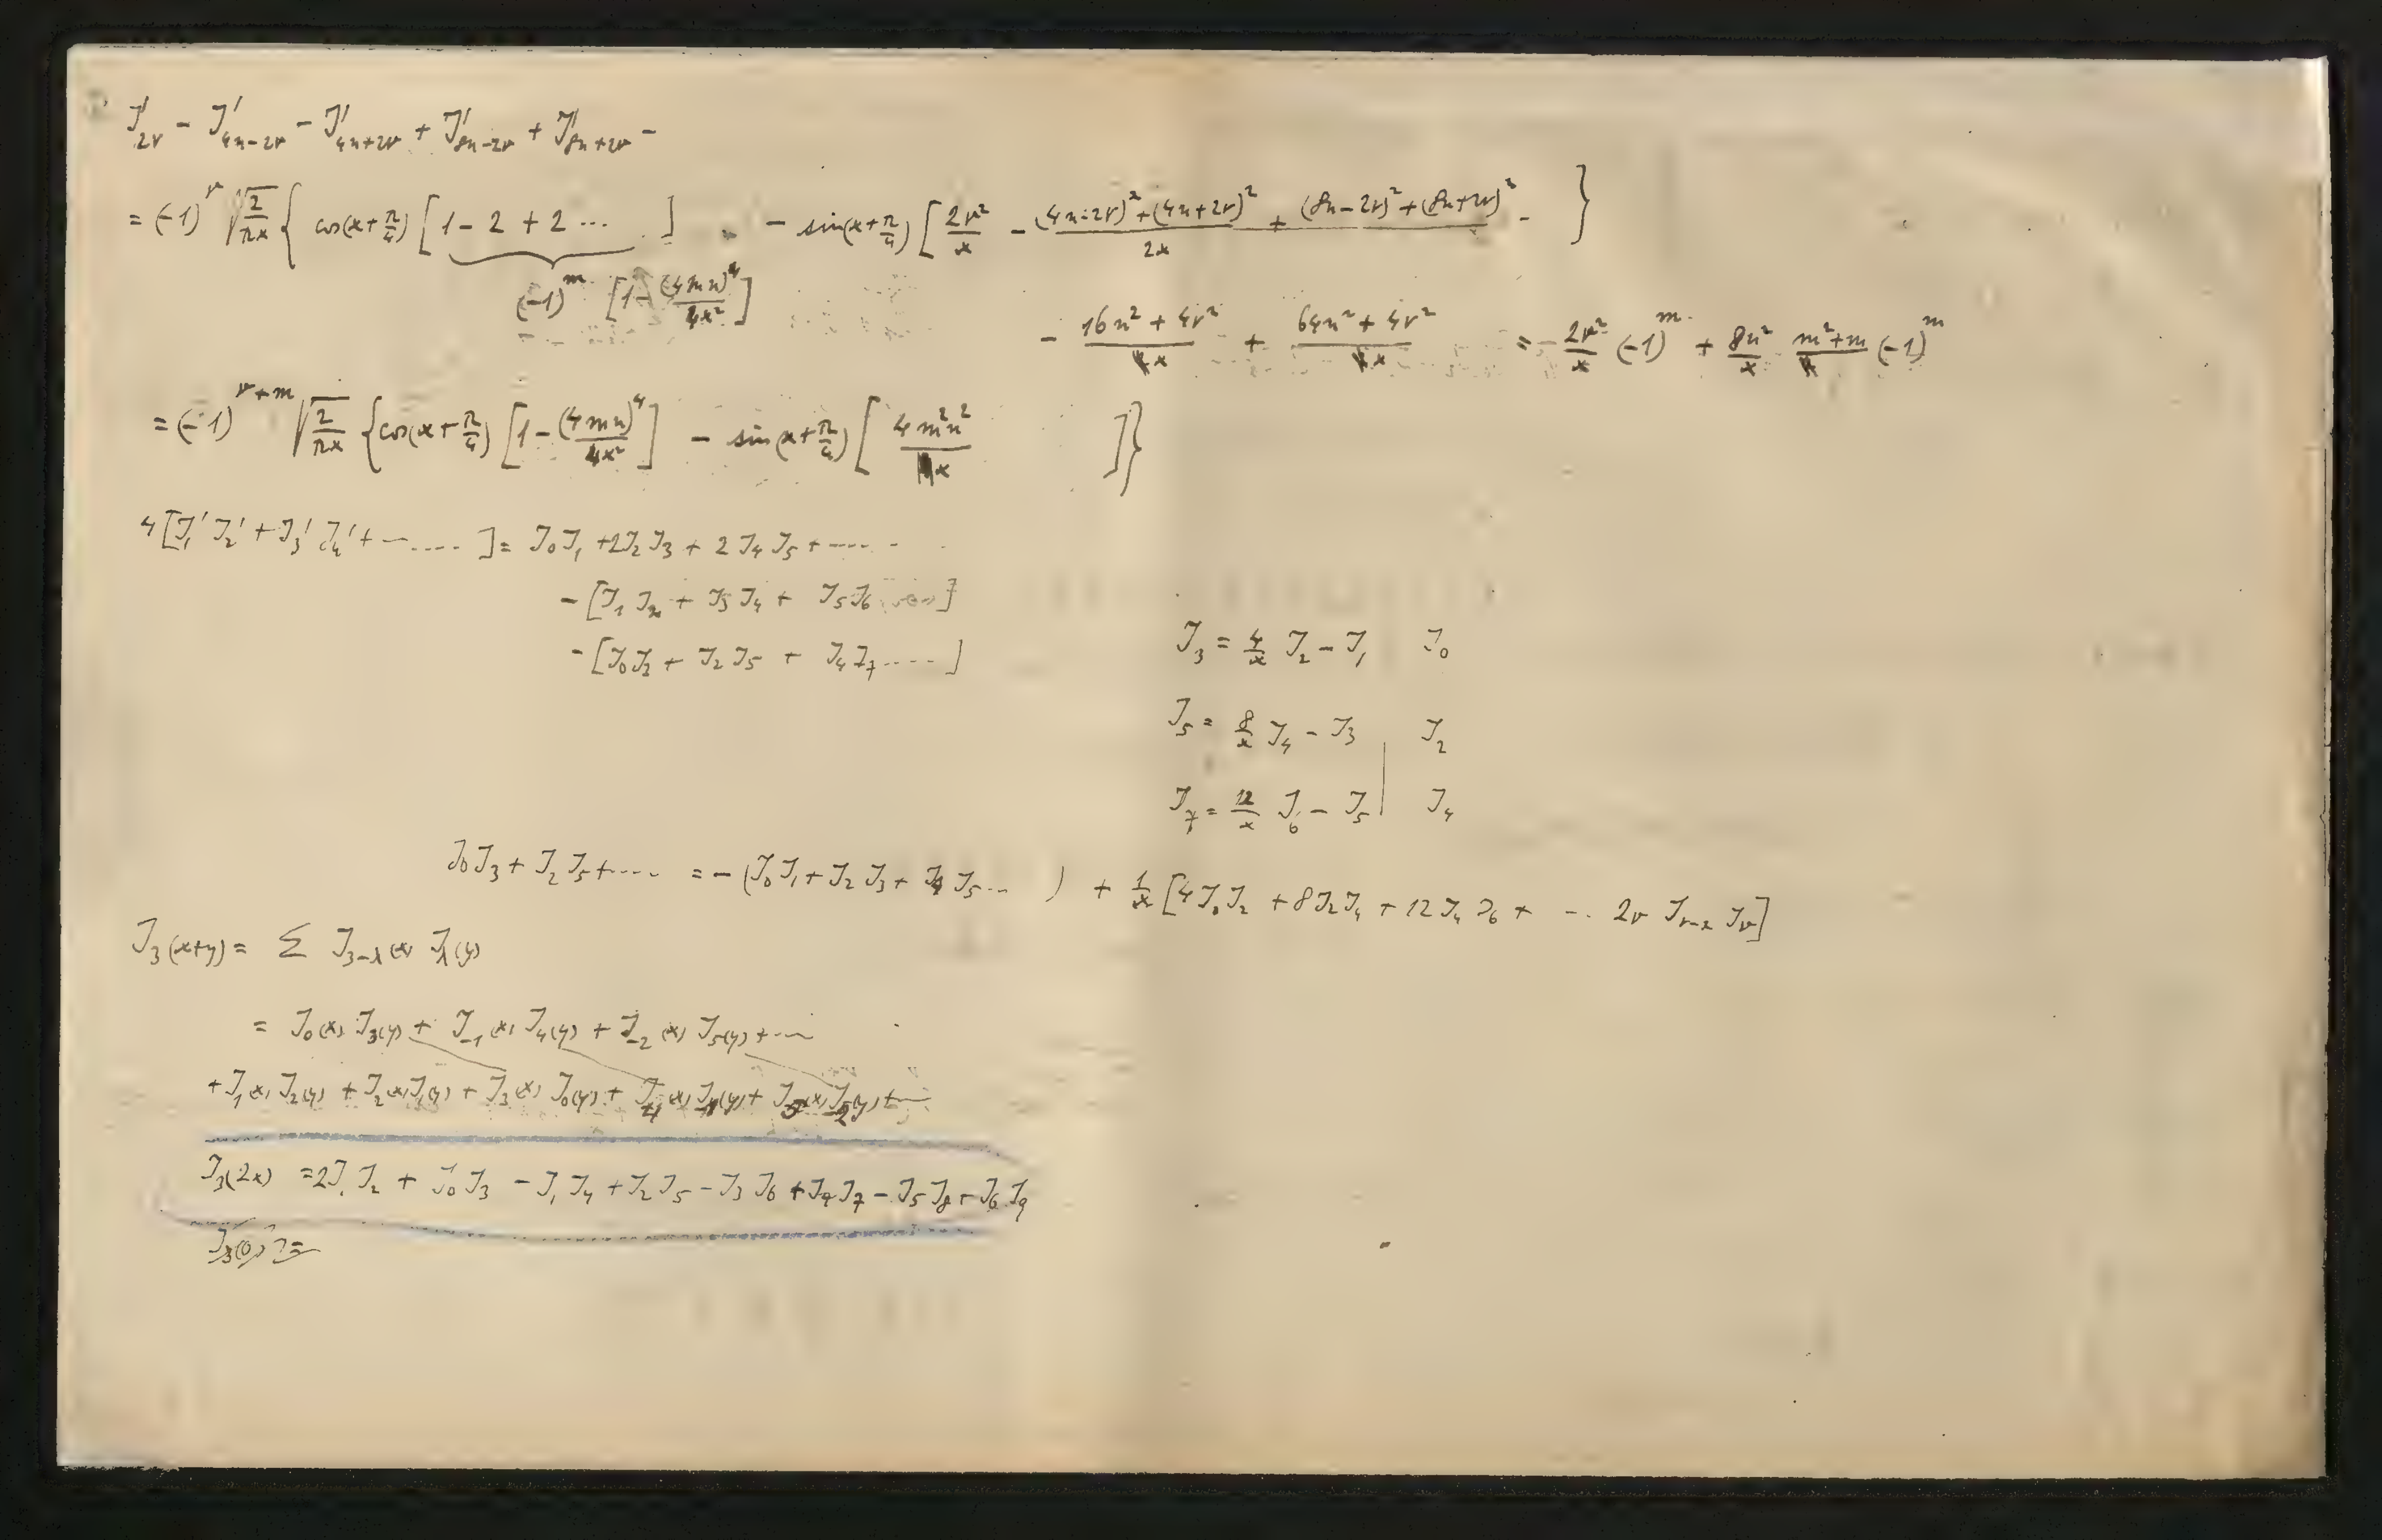 J'₂ᵥ − J'₄ₙ₋₂ᵥ − J'₄ₙ₊₂ᵥ + J'₈ₙ₋₂ᵥ + J'₈ₙ₊₂ᵥ −
= (-1)^ν √(2/πx) { cos(x+π/4) [1 − 2 + 2 ... ] − sin(x+π/4) [ 2ν²/x − ((4n−2ν)²+(4n+2ν)²)/2x + (8n−2ν)²+(8n+2ν)² − }
(-1)^m [1 − (4mn)⁴/4x²]
− (16n² + 4ν²)/x + (64n² + 4ν²)/x = 2ν²/x (-1)^m + 8n²/x (m²+m) (-1)^m
= (-1)^(ν+m) √(2/πx) { cos(x+π/4) [1 − (4mn)⁴/4x²] − sin(x+π/4) [ 4m²n²/x ] }
4[J₁'J₂' + J₃'J₄' + ........ ] = J₀J₁ + 2J₂J₃ + 2J₄J₅ + ......
− [J₁J₂ + J₃J₄ + J₅J₆ ]
− [J₀J₃ + J₂J₅ + J₄J₇ ..... ]
J₃ = 4/x J₂ − J₁ J₀
J₅ = 8/x J₄ − J₃ | J₂
J₇ = 12/x J₆ − J₅ | J₄
J₀J₃ + J₂J₅ + .... = − (J₀J₁ + J₂J₃ + J₄J₅ ... ) + 1/x [4J₀J₂ + 8J₂J₄ + 12J₄J₆ + ... 2ν Jᵥ₋₂ Jᵥ]
J₃(x+y) = Σ J₃₋λ(x) Jλ(y)
= J₀(x) J₃(y) + J₋₁(x) J₄(y) + J₋₂(x) J₅(y) + ...
+ J₁(x) J₂(y) + J₂(x) J₁(y) + J₃(x) J₀(y) + J₄(x) J₋₁(y) + J₅(x) J₋₂(y) + ...
J₃(2x) = 2J₁J₂ + J₀J₃ − J₁J₄ + J₂J₅ − J₃J₆ + J₄J₇ − J₅J₈ + J₆J₉
J₃(0) =